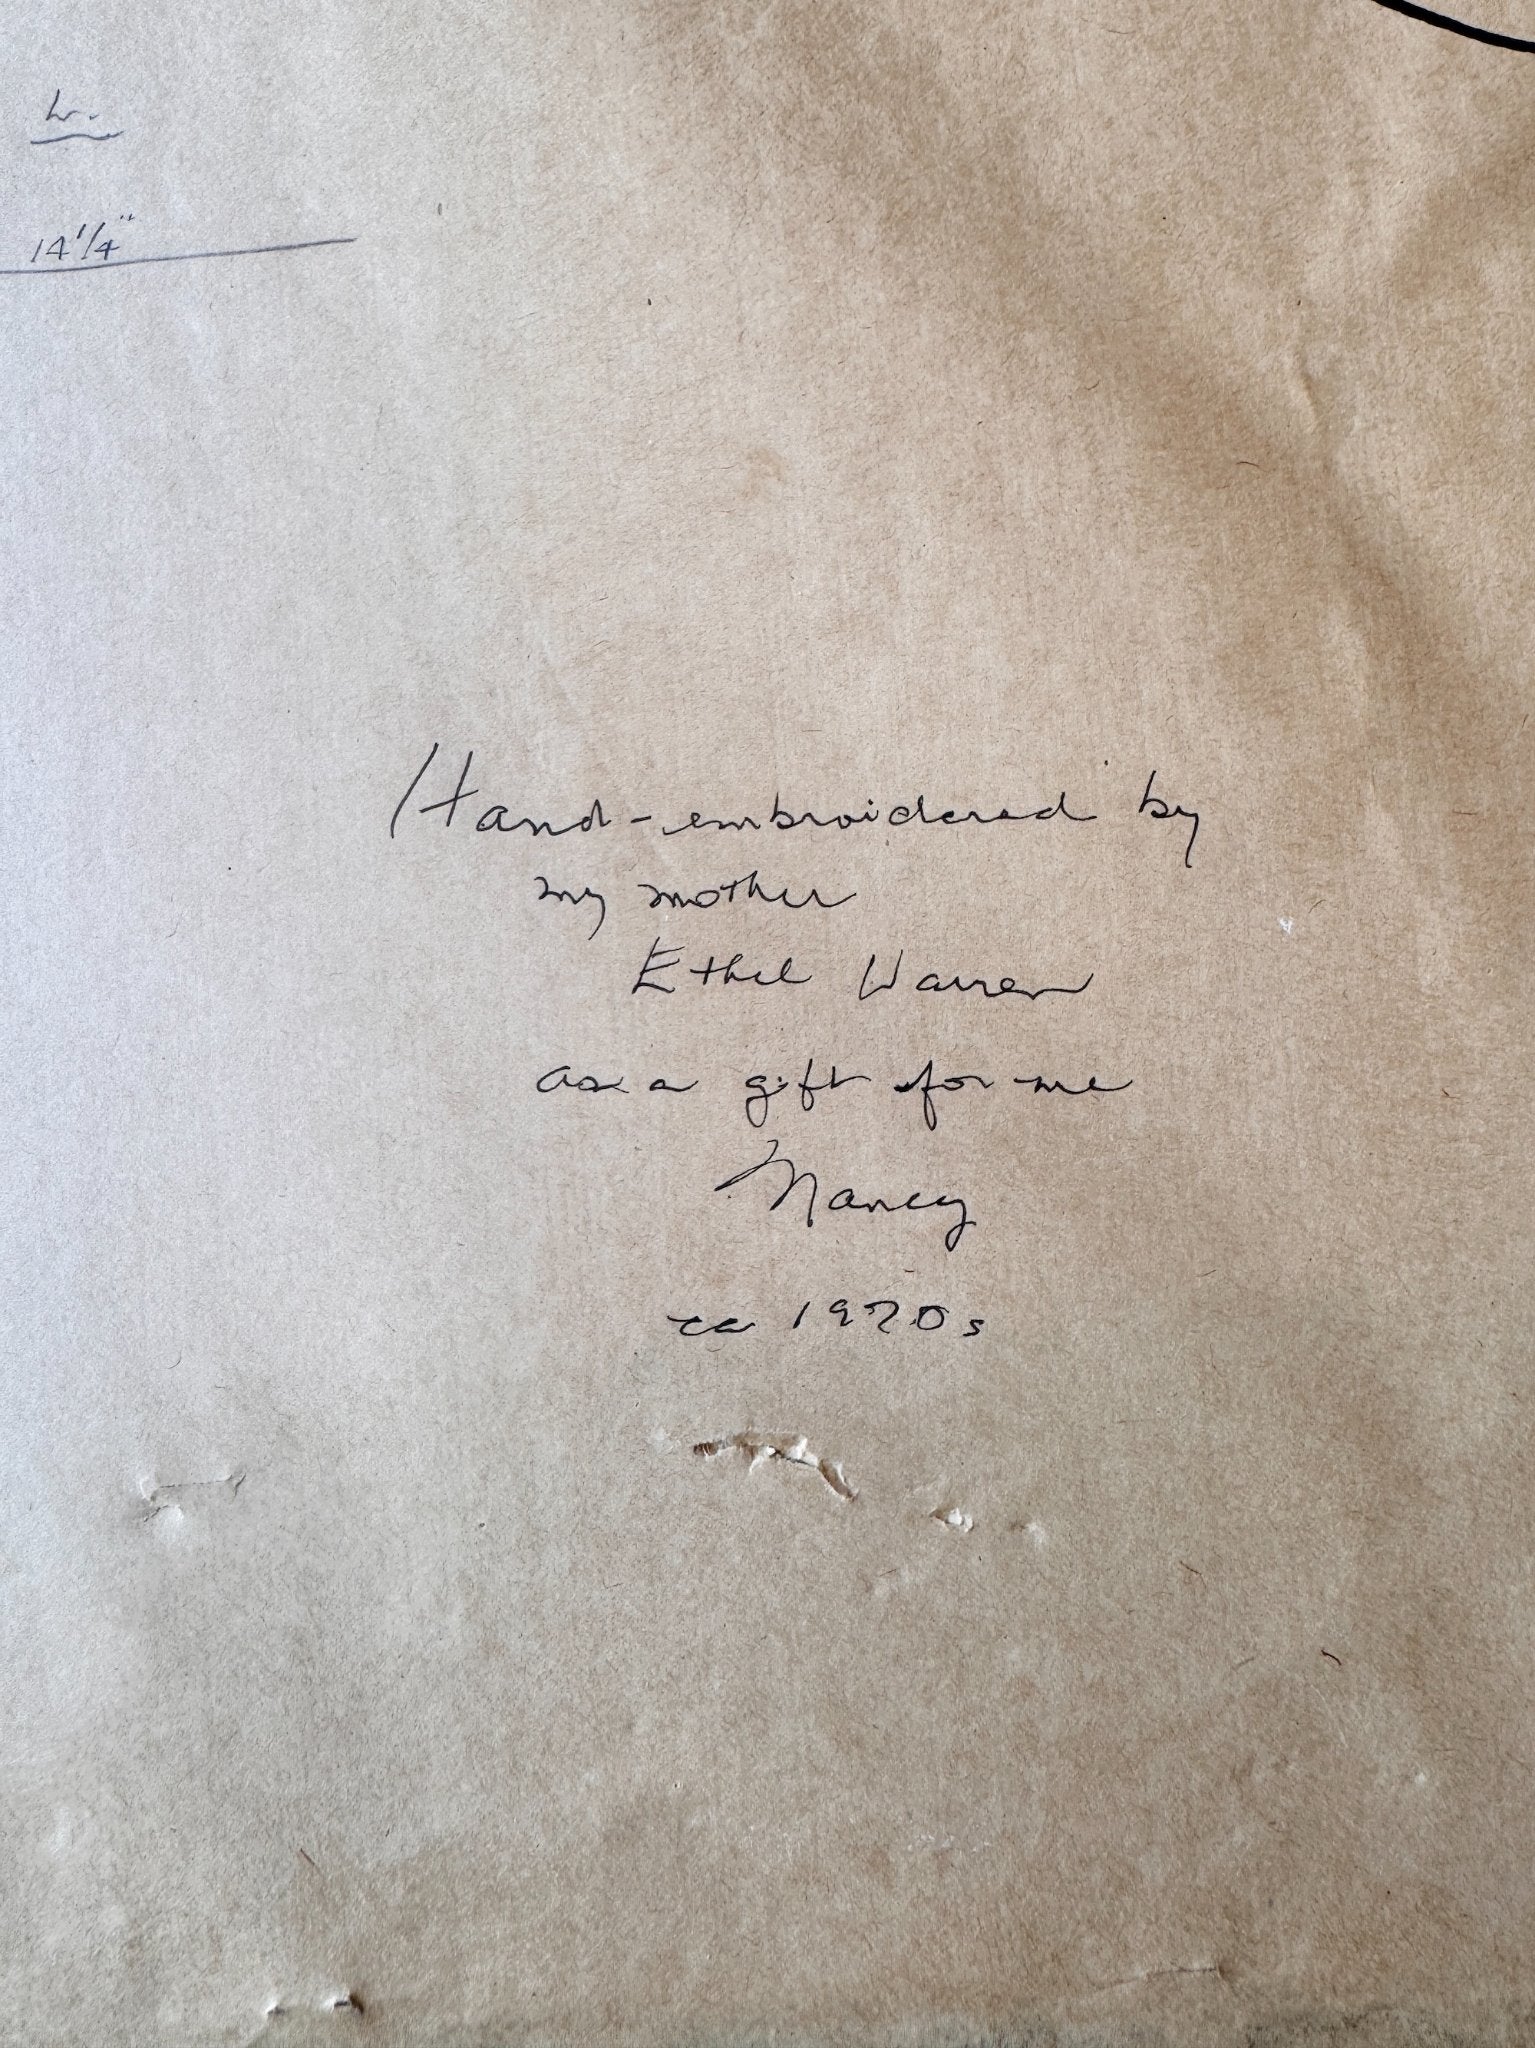 14 1/4"
Hand-embroidered by
my mother
Ethel Warren
as a gift for me
Nancy
ca 1970s